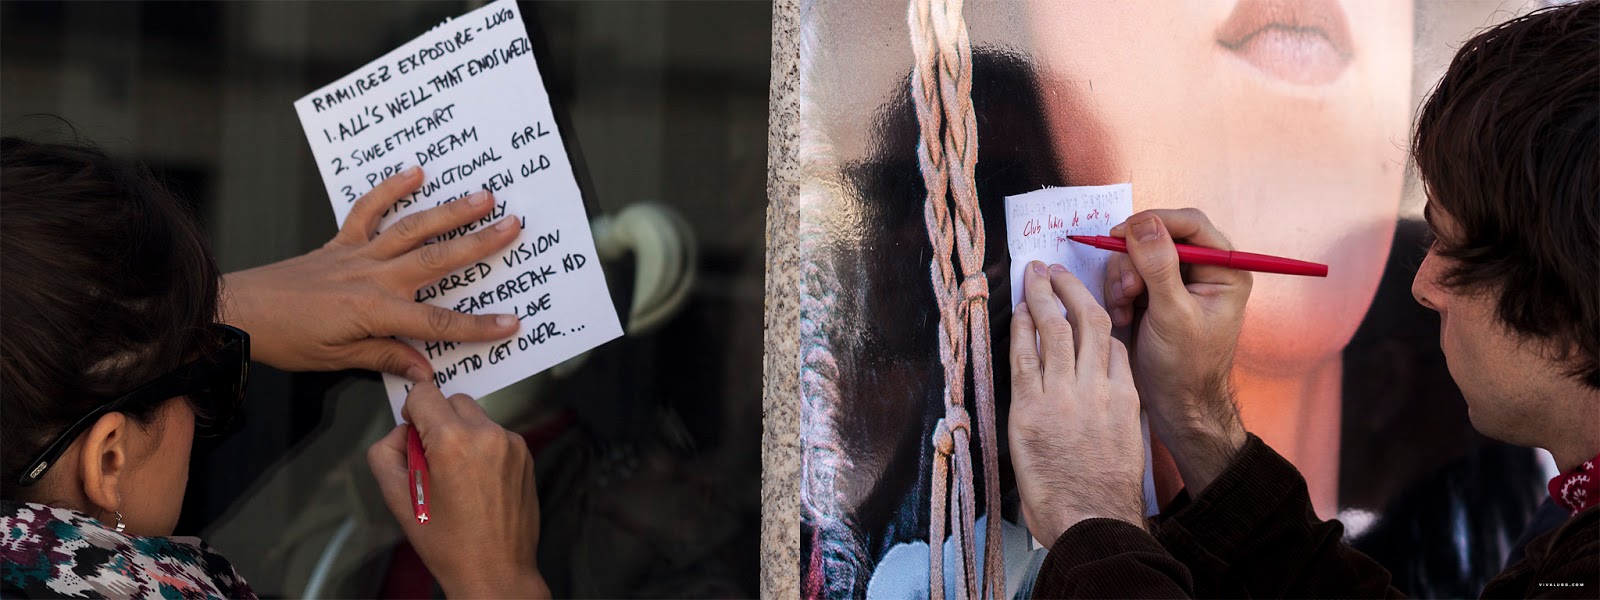 RAMIREZ EXPOSURE - LUGO
1. ALL'S WELL THAT ENDS WELL
2. SWEETHEART
3. PIPE DREAM
DYSFUNCTIONAL GIRL
THE NEW OLD
BLURRED VISION
HEARTBREAK KID
LOVE
HOW TO GET OVER....
Club libre de arte y
VIVALUGO.COM